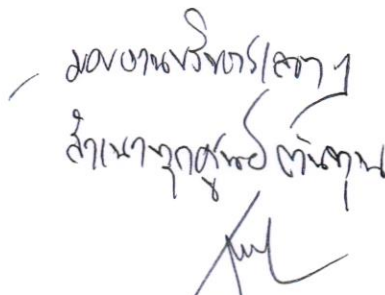 มอบงานบริหารเลขาฯ
สำเนาทุกศูนย์ต้นทุน